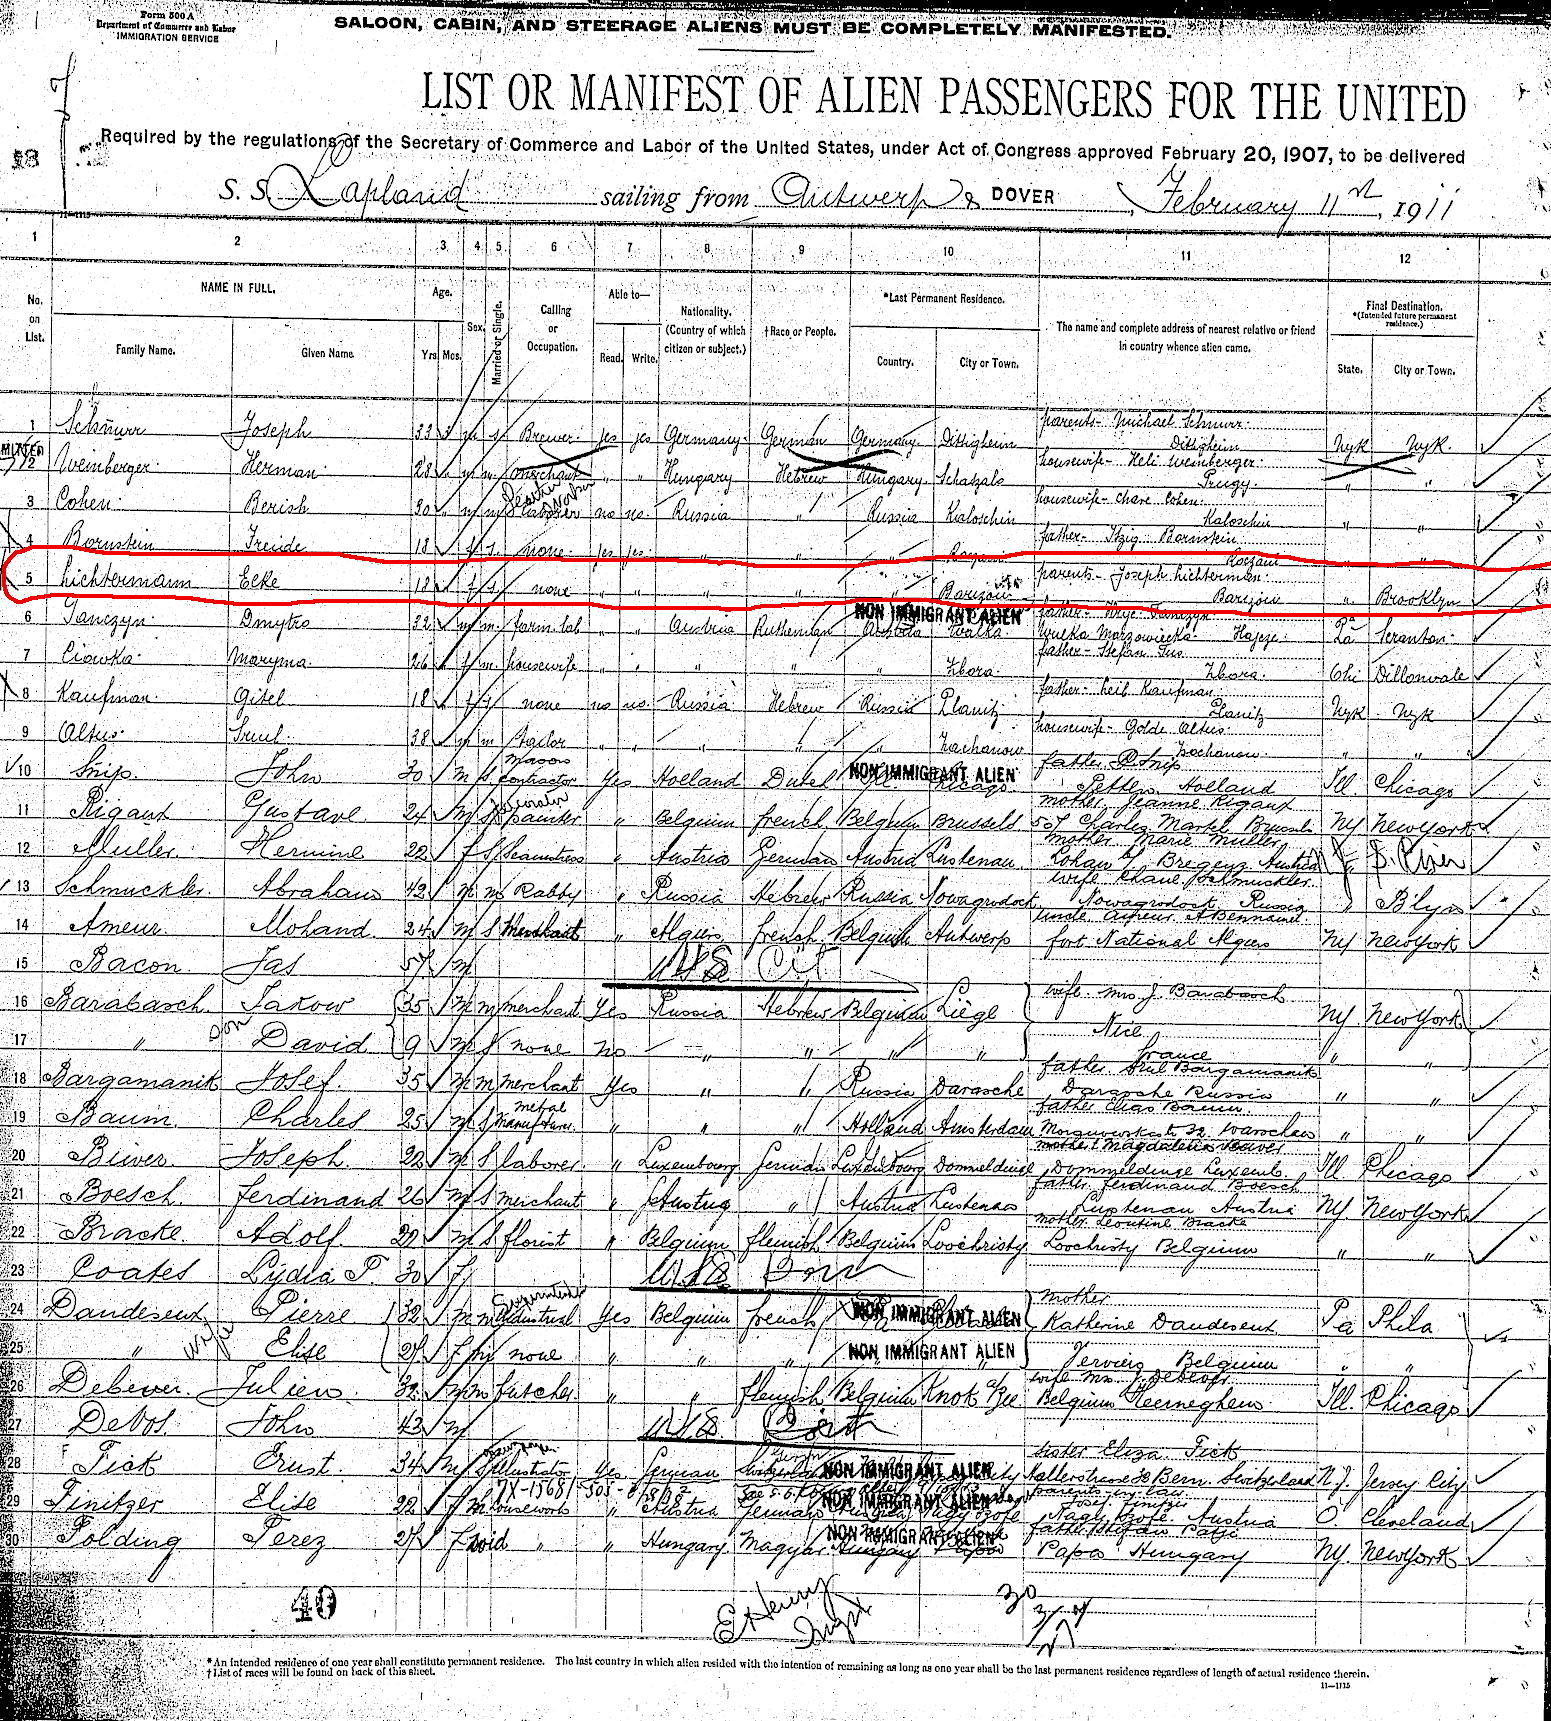 Form 500 A
Department of Commerce and Labor
IMMIGRATION SERVICE
SALOON, CABIN, AND STEERAGE ALIENS MUST BE COMPLETELY MANIFESTED.
LIST OR MANIFEST OF ALIEN PASSENGERS FOR THE UNITED
Required by the regulations of the Secretary of Commerce and Labor of the United States, under Act of Congress approved February 20, 1907, to be delivered
S. S. Lapland sailing from Antwerp & DOVER, February 11, 1911
1 2 3 4 5 6 7 8 9 10 11 12
No. on List.
NAME IN FULL.
Family Name. Given Name.
Age.
Yrs. Mos.
Sex.
Married or Single.
Calling or Occupation.
Able to—
Read. Write.
Nationality. (Country of which citizen or subject.)
†Race or People.
*Last Permanent Residence.
Country. City or Town.
The name and complete address of nearest relative or friend in country whence alien came.
Final Destination.
*(Intended future permanent residence.)
State. City or Town.
1 Schnurr Joseph 33 m s Brewer yes yes Germany German Germany Dittigheim parents- Michael Schnurr Dittigheim NyK NyK
2 Weinberger Herman 28 m m merchant " " Hungary Hebrew Hungary housewife- Weinberger " "
3 Cohen Berish 30 m m no no Russia " Russia Kaloschin housewife- Cohen Kaloschin " "
4 Bornstein Freide 18 f s none yes yes " " " father- Itzig Bornstein " "
5 Lichtermann Elke 18 f s none " " " " " Barizow parents- Joseph Lichterman Barizow " Brooklyn
6 Danczyn Dmytro 32 m m farm lab " " Austria Ruthenian NON IMMIGRANT ALIEN Pa Scranton
7 Ciowka Maryna 26 f m housewife " " " " " Zbora father- Stefan Zbora Dillonvale
8 Kaufman Gitel 18 f s none no no Russia Hebrew Russia Planitz father- Leib Kaufman Planitz NyK NyK
9 Altus Srul 38 m m tailor " " " " " Zachanow housewife- Golde Altus Zochanow " "
10 Snip John 30 m s mason contractor Yes Holland Dutch NON IMMIGRANT ALIEN Chicago father Snip Holland Ill Chicago
11 Rigaux Gustave 24 m s decorator painter " Belgium french Belgium Brussels mother Jeanne Rigaux Charles Martel Brussels NY New York
12 Muller Hermine 22 f s seamstress " Austria German Austria Lustenau mother Marie Muller Bregenz Austria
13 Schmuckler Abraham 42 m m Rabby " Russia Hebrew Russia Nowagrodock wife Chane Schmuckler Nowagrodock Russia " B'lyn
14 Ameur Mohand 24 m s Merchant " Algiers french Belgium Antwerp uncle fort National Algiers NY New York
15 Bacon Jas 57 m U S Cit
16 Barabasch Jakow 35 m m merchant Yes Russia Hebrew Belgium Liège wife Mrs J. Barabasch NY New York
17 " son David 9 m s none no " " " " Nice France " "
18 Bargamanik Josef 35 m m merchant Yes " " Russia Darasche father Bargamanik Darasche Russia " "
19 Baum Charles 25 m s metal manufactur. " " " Holland Amsterdam father Elias Baum 32 Warschau " "
20 Biwer Joseph 22 m s laborer " Luxembourg German Luxembourg Dommeldinge mother Magdalena Dommeldinge Luxemb. Ill Chicago
21 Boesch Ferdinand 26 m s merchant " Austria " Austria Lustenau father Ferdinand Boesch Lustenau Austria NY. New York
22 Bracke Adolf 29 m s florist " Belgium flemish Belgium Loochristy mother Leontine Bracke Loochristy Belgium " "
23 Coates Lydia P. 30 f U S Born
24 Dandeseux Pierre 32 m m Industrial Yes Belgium french NON IMMIGRANT ALIEN mother Katherine Dandeseux Pa Phila
25 " wife Elise 27 f m none " " " NON IMMIGRANT ALIEN Verviers Belgium " "
26 Debever Julien 32 m m butcher " " flemish Belgium Knok a/Zee wife Mrs. J. Debever Belgium Ill. Chicago
27 DeVos John 43 m U S Born
28 Fick Ernst 34 m s Illustrator Yes German NON IMMIGRANT ALIEN sister Eliza Fick Bern Switzerland N.J. Jersey City
29 Finitzer Elise 22 f m housework " Austria German NON IMMIGRANT ALIEN parents in law Josef Austria O. Cleveland
30 Polding Terez 27 f wid " " Hungary Magyar Hungary NON IMMIGRANT ALIEN father Papa Hungary NY. New York
40
E Henry
30
27
*An intended residence of one year shall constitute permanent residence. The last country in which alien resided with the intention of remaining as long as one year shall be the last permanent residence regardless of length of actual residence therein.
†List of races will be found on back of this sheet.
11—1115